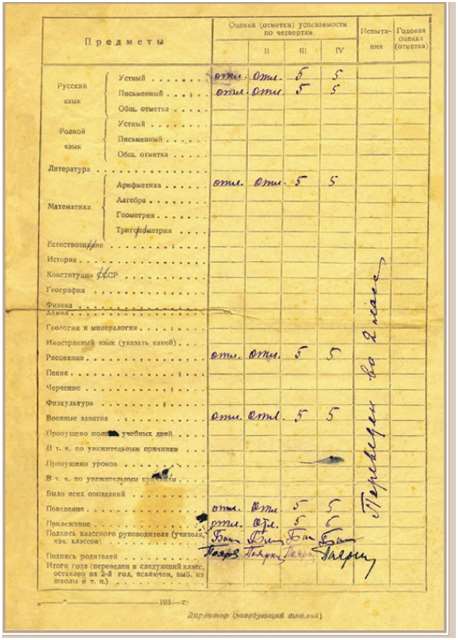 Предметы
Оценка (отметка) успеваемости по четвертям
Испыта-
ния
Годовая
оценка
(отметка)
II III IV
Русский
язык
Устный отл. отл. 5 5
Письменный отл. отл. 5 5
Общ. отметка
Родной
язык
Устный
Письменный
Общ. отметка
Литература
Математика
Арифметика отл. отл. 5 5
Алгебра
Геометрия
Тригонометрия
Естествознание
История
Конституция СССР
География
Физика
Химия
Геология и минералогия
Иностранный язык (указать какой)
Рисование отл. отл. 5 5
Пение
Черчение
Физкультура
Военные занятия отл. отл. 5 5
Пропущено учебных дней
В т. ч. по уважительным причинам
Пропущено уроков
В т. ч. по уважительным
Было всех опозданий
Поведение отл. отл. 5 5
Прилежание отл. отл. 5 5
Подпись классного руководителя (учителя,
зав. классом)
Подпись родителей
Итоги года (переведен в следующий класс,
оставлен на 2-й год, выб. из
школы и т. п.)
Переведен во 2 класс
193 г.
Директор (заведующий школой)